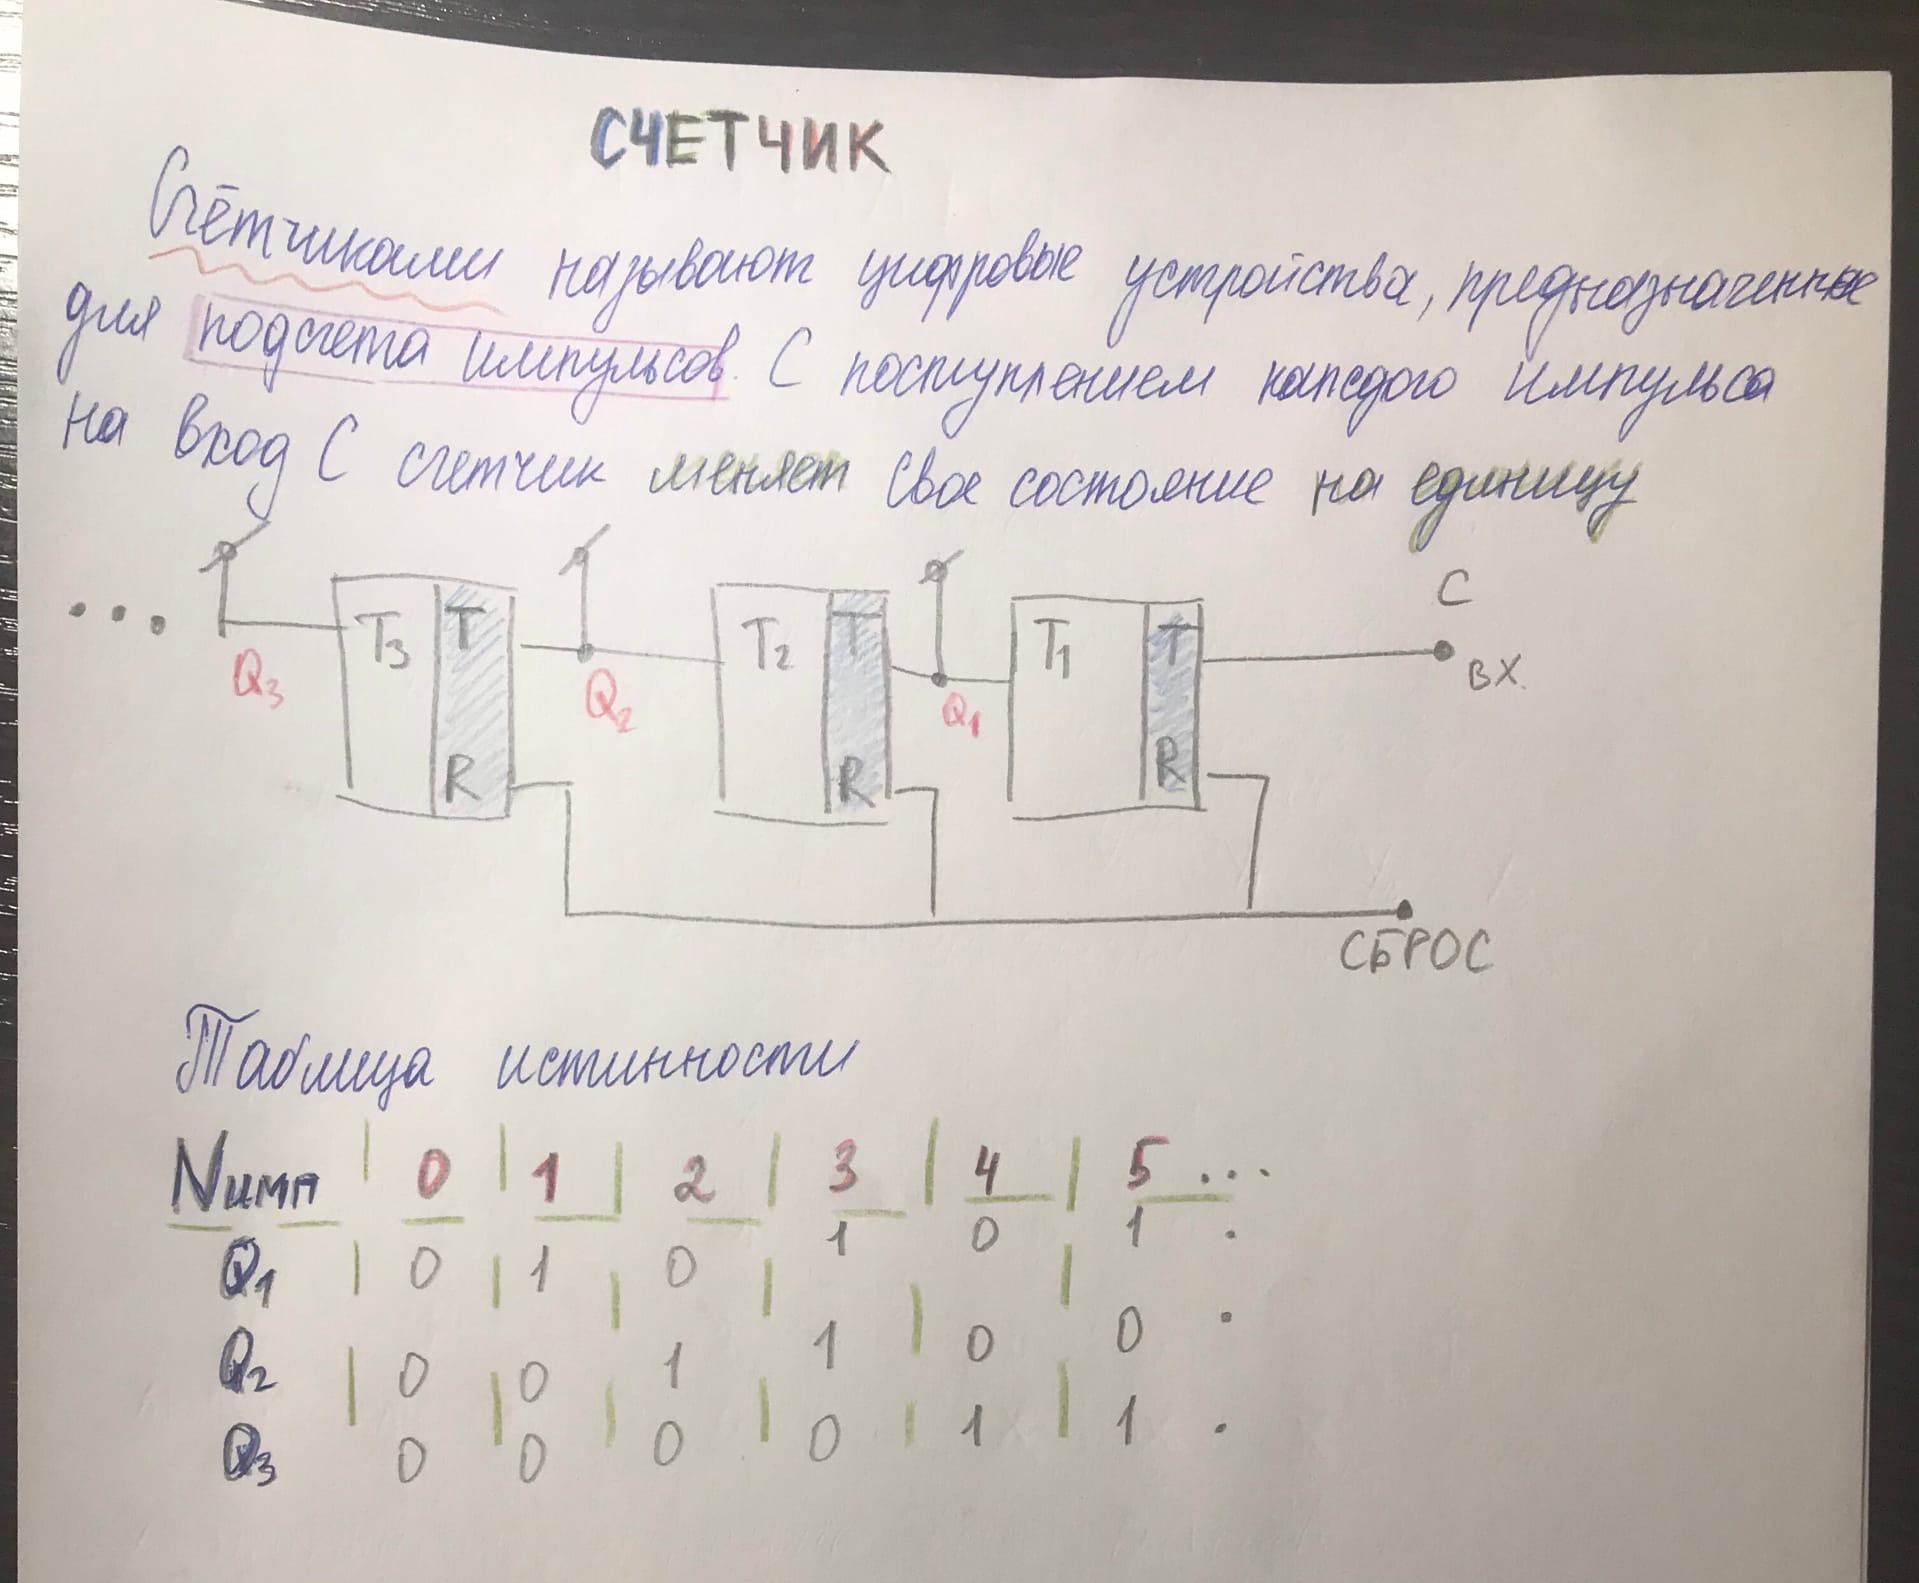 СЧЕТЧИК
Счётчиками называют цифровые устройства, предназначенные
для подсчета импульсов. С поступлением каждого импульса
на вход С счетчик меняет свое состояние на единицу
... T3 T T2 T T1 T С
Q3 Q2 Q1 ВХ.
R R R
СБРОС
Таблица истинности
Nимп | 0 | 1 | 2 | 3 | 4 | 5 ...
Q1 | 0 | 1 | 0 | 1 0 | 1 .
Q2 | 0 | 0 | 1 | 1 | 0 | 0 .
Q3 0 0 0 0 1 1 .